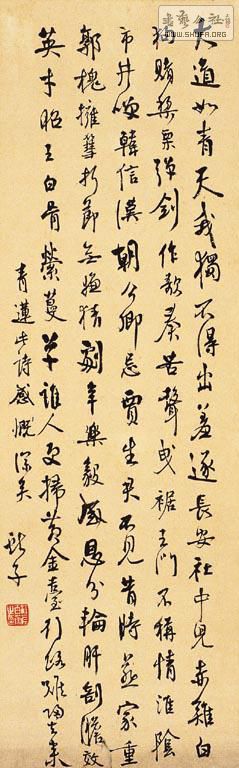 书艺公社
WWW.SHUFA.ORG
大道如青天我獨不得出羞逐長安社中兒赤雞白
狗賭梨栗彈劍作歌奏苦聲曳裾王門不稱情淮陰
市井咲韓信漢朝公卿忌賈生君不見昔時燕家重
郭槐擁篲折節無嫌猜劇辛樂毅感恩分輸肝剖膽效
英才昭王白骨縈蔓草誰人更掃黃金臺行路難歸去來
青蓮此詩感慨深矣